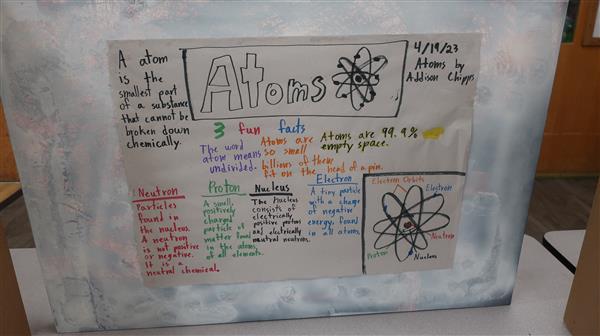 A atom
is the
smallest part
of a substance
that cannot be
broken down
chemically.
Atoms
4/19/23
Atoms by
Addison Chipps
3 fun facts
The word
atom means
undivided.
Atoms are
so small
billions of them
fit on the head of a pin.
Atoms are 99.9%
empty space.
Neutron
Particles
found in
the nucleus.
A neutron
is not positive
or negative.
It is a
neutral chemical.
Proton
A small,
positively
charged
particle of
matter found
in the atoms
of all elements.
Nucleus
The nucleus
consists of
electrically
positive protons
and electrically
neutral neutrons.
Electron
A tiny particle
with a charge
of negative
energy, found
in all atoms.
Electron Orbits
Electron
Neutron
Nucleus
Proton